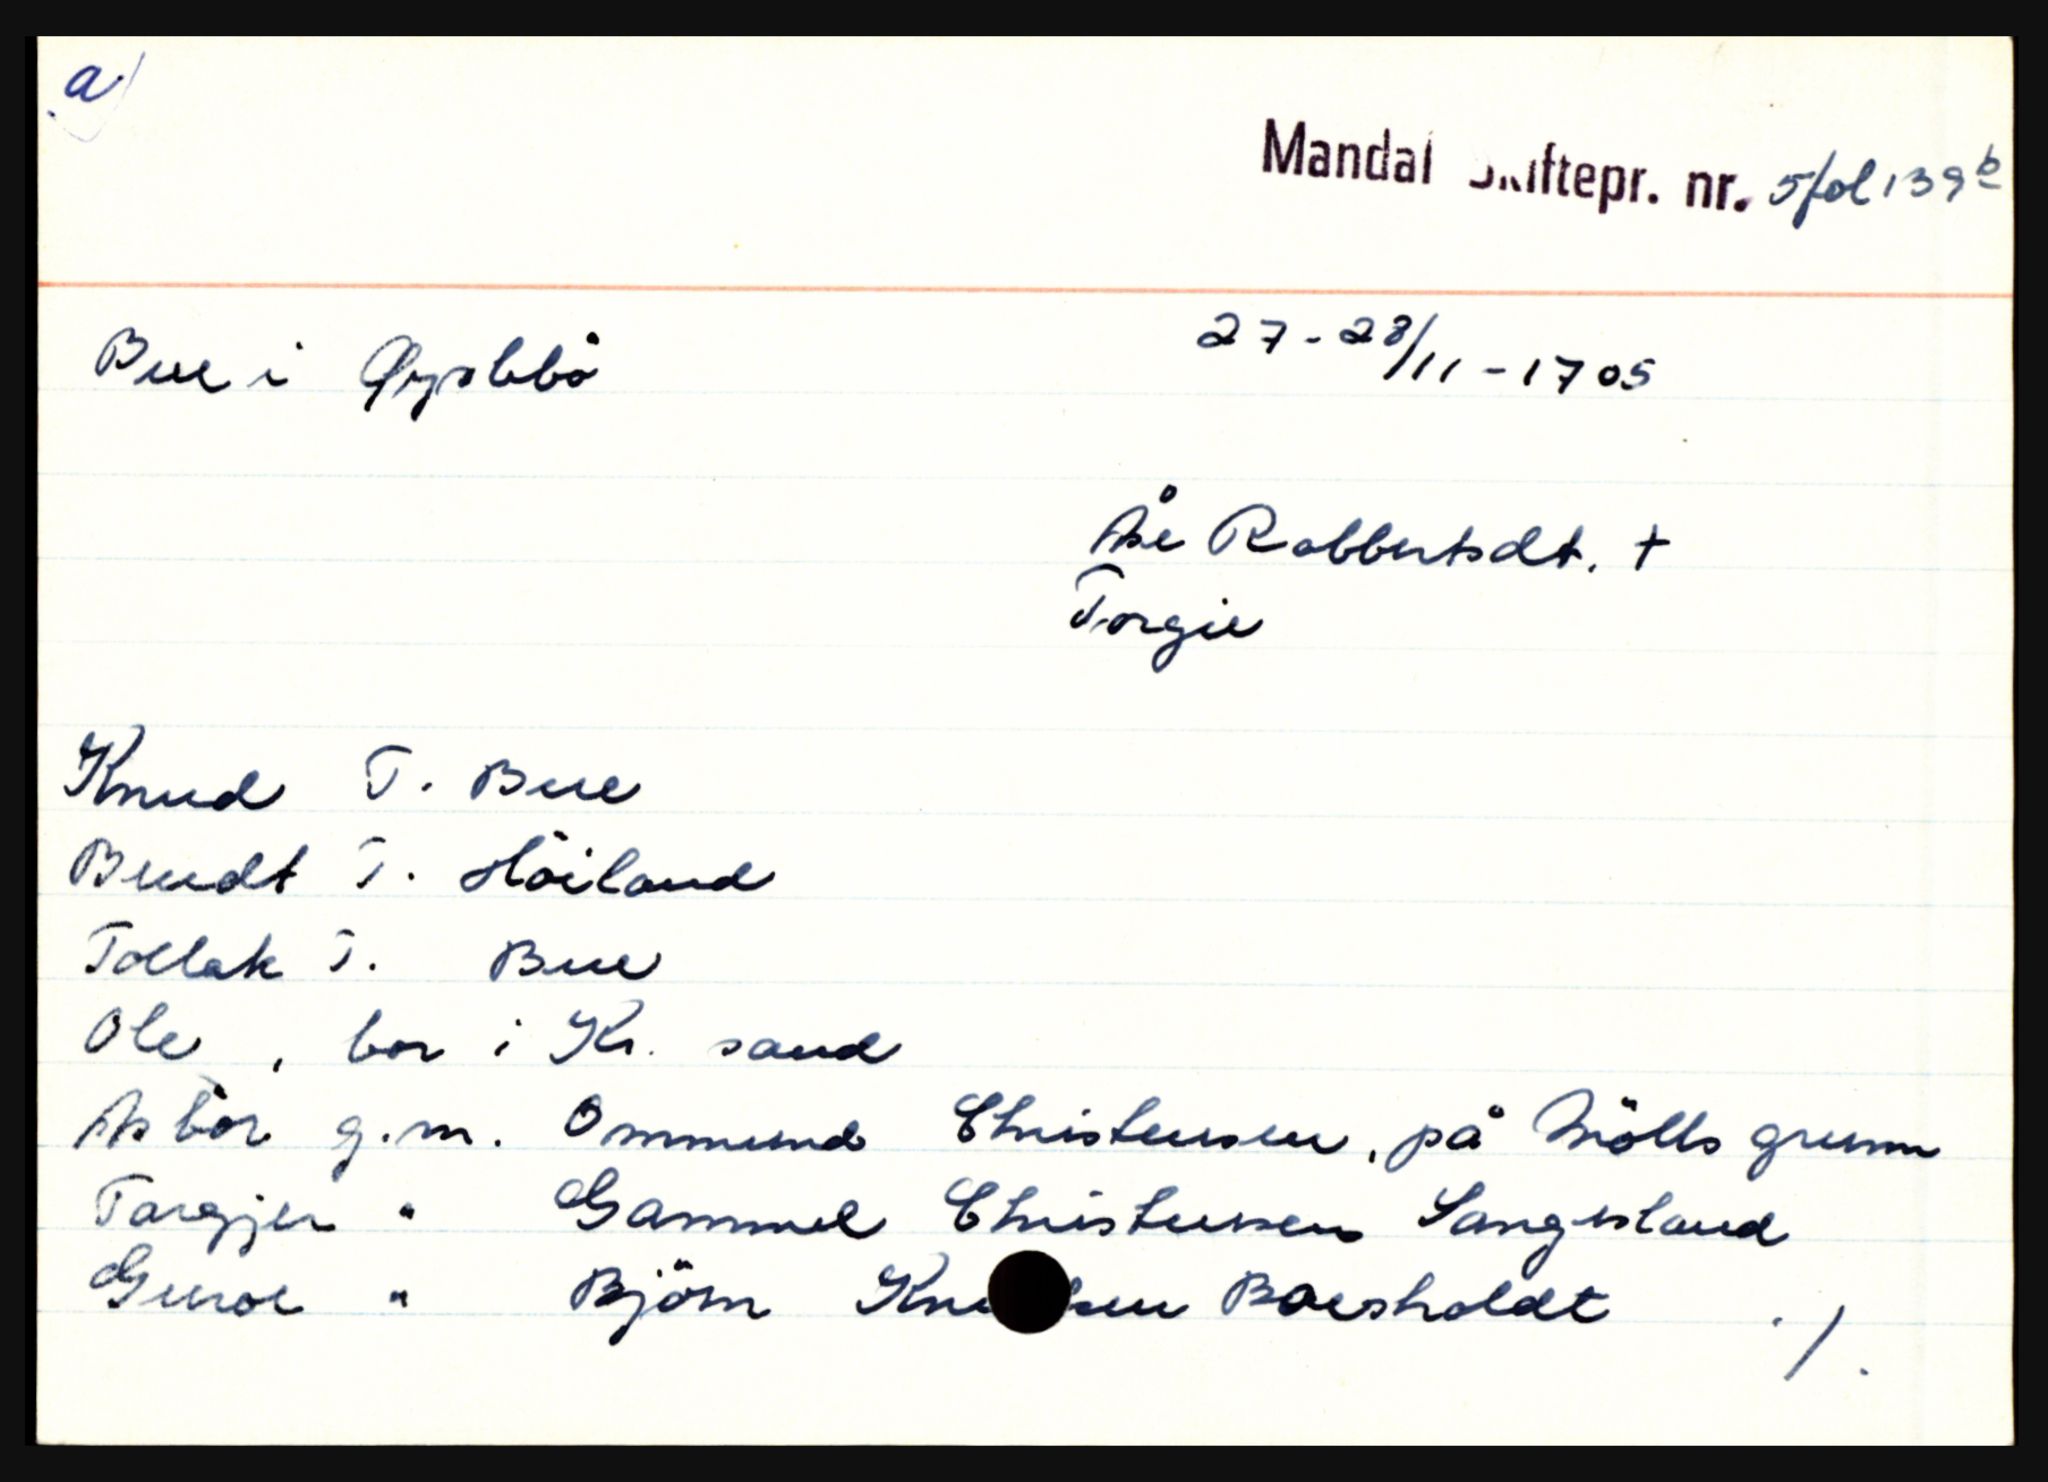 a)
Mandal Skiftepr. nr. 5 fol 139 b
27-28/11-1705
Bue i Øyslebö
Åse Robbertsdt. +
Torgie
Knud T. Bue
Bendt T. Höiland
Tollak T. Bue
Ole, bor i Kr. sand
Asbör g.m. Ommund Christensen, på Mölls grunn
Targjer " Gammel Christensen Sangesland
Guroe " Björn Knudsen Boesholdt ./.